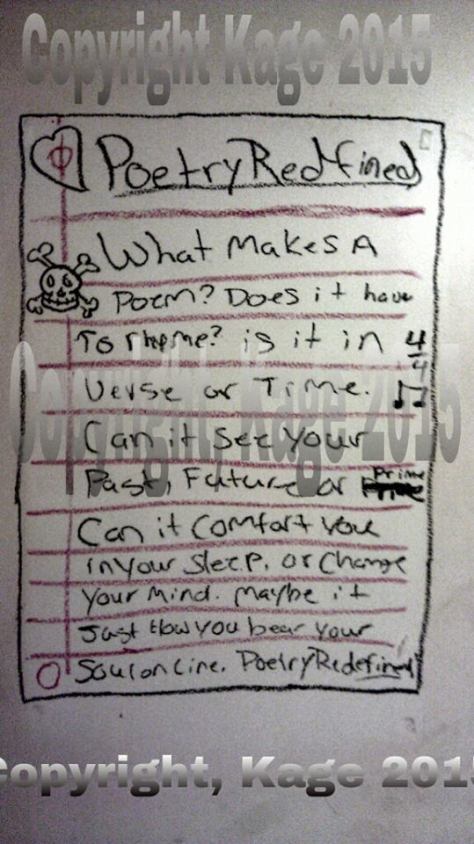 Copyright Kage 2015
Poetry Redfined
What makes A
Poem? Does it have
To rhyme? is it in 4/4
Verse or Time.
Copyright, Kage 2015
Can it see your
Past, Future or Prime
Can it comfort you
in your sleep. or change
your mind. maybe it
Just How you bear your
Soul on line. Poetry Redefined
Copyright, Kage 2015